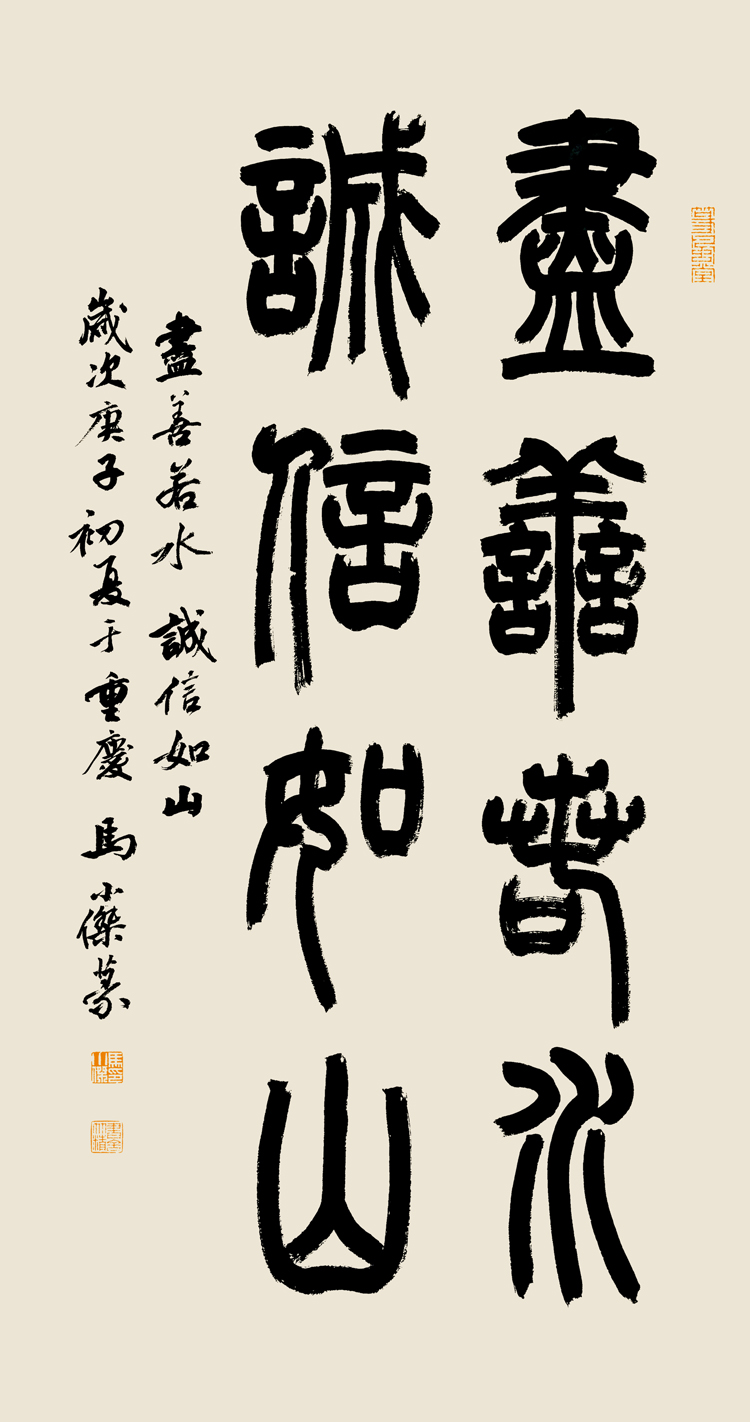 盡善若水
誠信如山
盡善若水 誠信如山
歲次庚子初夏于重慶 馬小傑篆